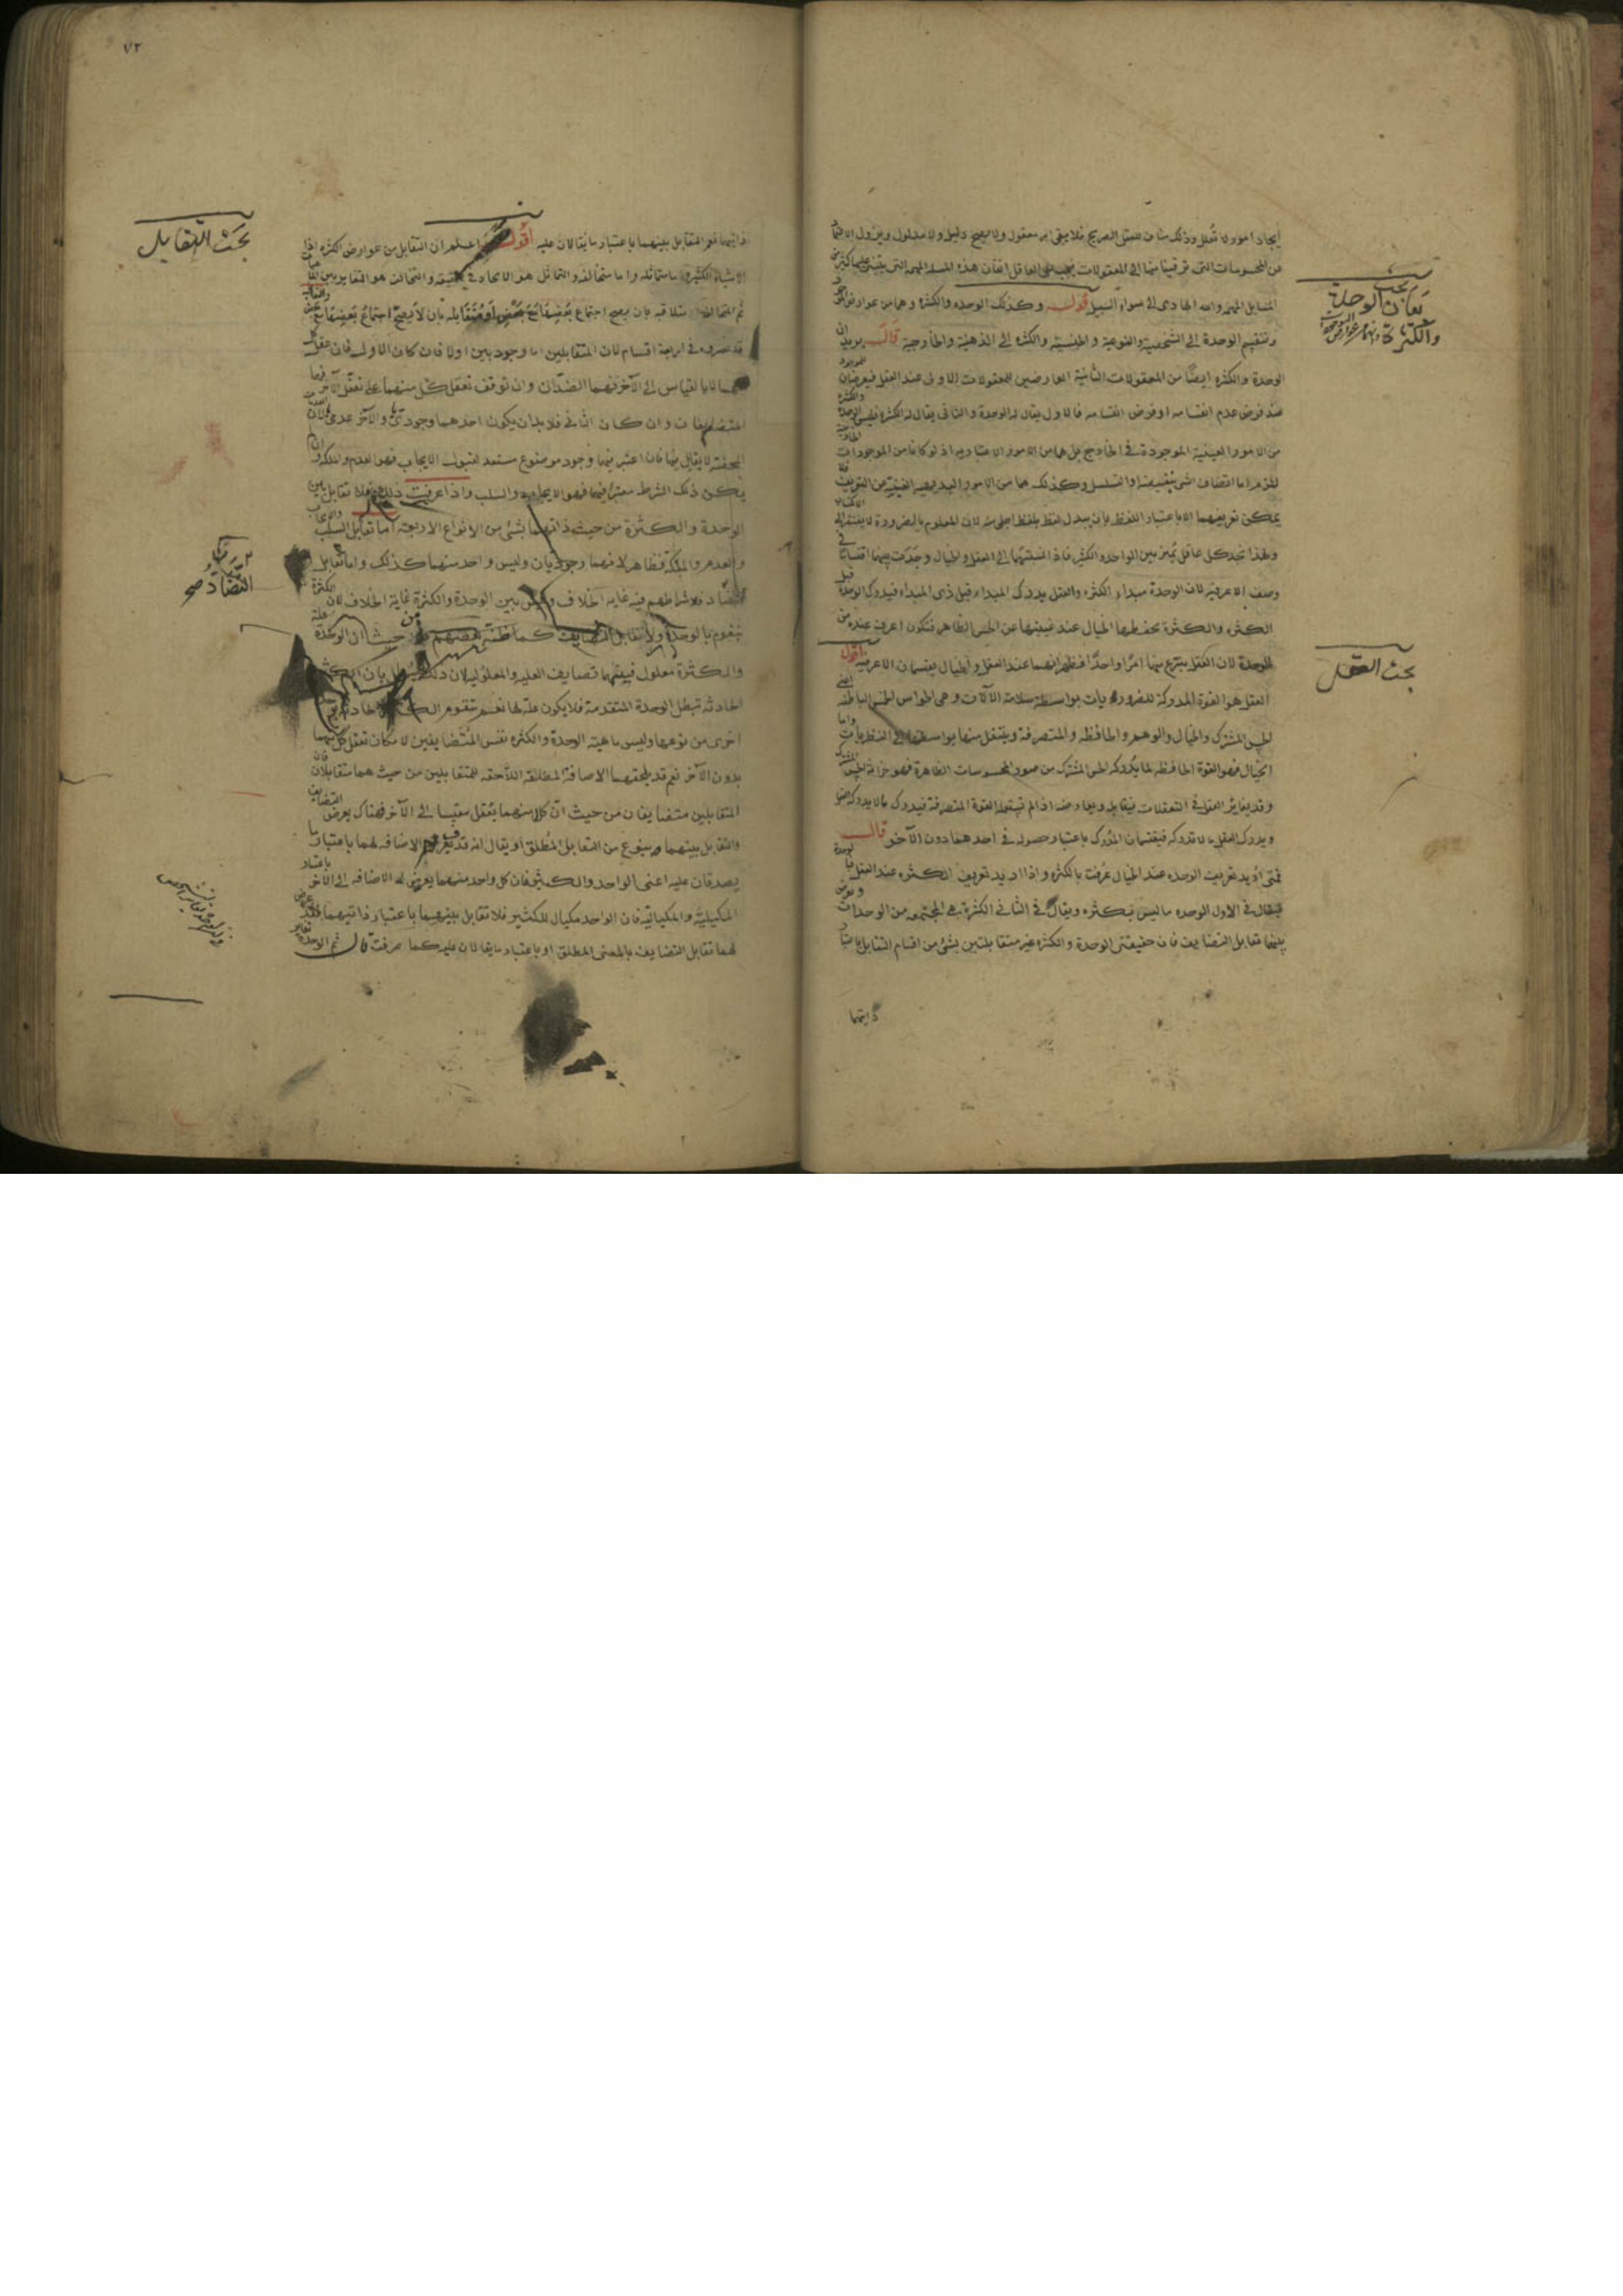 ايجاد امور لا تعلل وذلك مناف للعقل الصريح فلا يبقى امر معقول ولا يصح دليل ولا مدلول ويزول الاعتماد
عن المحسوسات التى ترقينا منها الى المعقولات يجب على العاقل اتقان هذه المسئلة المهمة التى يبتنى عليها كثير من
المسايل المهمة والله الهادى الى سواء السبيل قوله وكذلك الوحدة والكثرة وهما من عوارض
وتنقسم الوحدة الى الشخصية والنوعية والجنسية والكثرة الى الذهنية والخارجية قال يريد ان
الوحدة والكثرة ايضًا من المعقولات الثانية العارضين للمعقولات الاولى عند العقل فيعرضان للموجود
عند فرض عدم انقسامه او فرض انقسامه فالاول يقال له الوحدة والثانى يقال له الكثرة فليس الوحدة والكثرة
من الامور العينية الموجودة فى الخارج بل هما من الامور الاعتبارية اذ لو كانا من الموجودات الخارجية
للزم اما اتصاف الشئ بنقيضه او التسلسل وكذلك هما من الامور البديهية الغنية عن التعريف فلا
يمكن تعريفهما الا باعتبار اللفظ بان يبدل لفظ بلفظ اجلى منه لان المعلوم بالضرورة لا يفتقر الى الاكتساب
ولهذا تجد كل عاقل يميز بين الواحد والكثير فاذا نسبتهما الى العقل والخيال وجدت بينهما اقتسامًا فى
وصف الاعرفية لان الوحدة مبداء الكثرة والعقل يدرك المبداء قبل ذى المبداء فيدرك الوحدة قبل
الكثرة والكثرة يحفظها الخيال عند غيبتها عن الحس الظاهر فتكون اعرف عنده من
الوحدة لان العقل ينتزع منها امرًا واحدًا فظهر انهما عند العقل والخيال يقتسمان الاعرفية اقول
العقل هو القوة المدركة للضروريات بواسطة سلامة الآلات وهى الحواس الخمس الباطنة اعنى
الحس المشترك والخيال والوهم والحافظة والمتصرفة وينتقل منها بواسطتها الى النظريات واما
الخيال فهو القوة الحافظة لما يدركه الحس المشترك من صور المحسوسات الظاهرة فهو خزانة الحس المشترك
وقد يغاير العقل فى التعقلات فيقابله ويعارضه اذا لم تستعمله القوة المتصرفة فيدرك ما لا يدركه العقل
ويدرك العقل ما لا تدركه فيقتسمان المدرك باعتبار حصوله فى احدهما دون الآخر قال
فمتى اريد تعريف الوحدة عند الخيال عرفت بالكثرة واذا اريد تعريف الكثرة عند العقل
فيقال فى الاول الوحدة ما ليس بكثرة ويقال فى الثانى الكثرة هى المجتمعة من الوحدات
بينهما تقابل التضايف فان حقيقتى الوحدة والكثرة غير متقابلتين بشئ من اقسام التقابل باعتبار
ذاتيهما
بحث
بيان الوحدة
والكثرة
بحث العقل
٧٢
ذاتيهما فهو التقابل بينهما باعتبار ما يقالان عليه اقول اعلم ان التقابل من عوارض الكثرة
الاشياء الكثيرة اما متماثلة واما متخالفة والتماثل هو الاتحاد فى الحقيقة والتخالف هو التغاير
ثم المتخالفة متلاقية بان يصح اجتماع بعضها مع بعض او متقابلة بان لا يصح اجتماع بعضها مع بعض
قد حصروه فى اربعة اقسام لان المتقابلين اما وجوديين اولا فان كان الاول فان عقل كل
منهما لا بالقياس الى الآخر فهما الضدان وان توقف تعقل كل منهما على تعقل الآخر فهما
المتضايفان وان كان الثانى فلا بد ان يكون احدهما وجوديًا والآخر عدميًا لان
المحضة لا يقابل بينها فان اعتبر فيها وجود موضوع مستعد لقبول الايجاب فهو العدم والملكة وان لم
يكن ذلك الشرط معتبرًا فيهما فهو الايجاب والسلب واذا عرفت ذلك فلا تقابل بين
الوحدة والكثرة من حيث ذاتهما بشئ من الانواع الاربعة اما تقابل السلب والايجاب
والعدم والملكة فظاهر لانهما وجوديان وليس واحد منهما كذلك واما تقابل
التضاد فلاشراطهم فيه غاية الخلاف وليس بين الوحدة والكثرة غاية الخلاف لان الكثرة
تتقوم بالوحدة ولا تقابل التضايف كما ظنه بعضهم من حيث ان الوحدة علة
والكثرة معلول فبينهما تضايف العلية والمعلولية لان ذلك يبطل بان الكثرة
الحادثة تبطل الوحدة المتقدمة فلا يكون علة لها نعم تتقوم الكثرة الحادثة
اخرى من نوعها وليس ماهية الوحدة والكثرة نفس المتضايفين لامكان تعقل كل منهما
بدون الآخر نعم قد يلحقهما الاضافة المطلقة اللاحقة للمتقابلين من حيث هما متقابلان فان
المتقابلين متضايفان من حيث ان كلا منهما يعقل مقيسا الى الآخر فهناك يعرض التضايف
والتقابل بينهما بنوع من التقابل المطلق او يقال انه قد يعرض الاضافة لهما باعتبار ما
يصدقان عليه اعنى الواحد والكثير فان كل واحد منهما يعرض له الاضافة الى الآخر باعتبار
المكيلية والمكيالية فان الواحد مكيال للكثير فلا تقابل بينهما باعتبار ذاتيهما
لهما تقابل التضايف بالمعنى المطلق او باعتبار ما يقالان عليه كما عرفت قال ثم الوحدة
بحث التقابل
بيان
التضاد صح